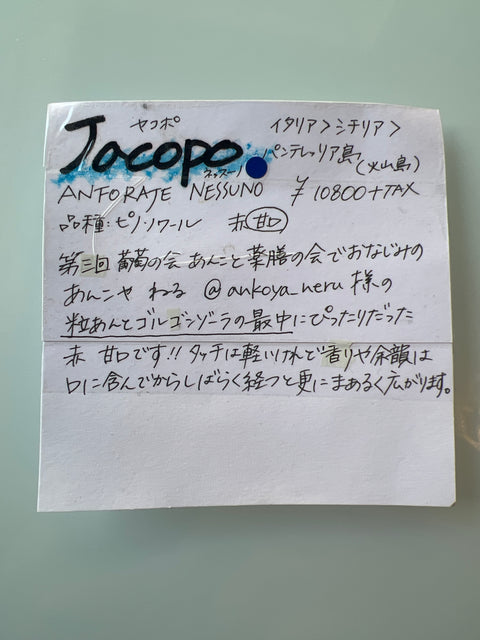 ヤコポ
Jacopo
イタリア>シチリア>
パンテレリア島(火山島)
ネッスーノ
ANFORAJE NESSUNO ¥10800+TAX
品種:ピノノワール 赤 甘口
第三回 葡萄の会 あんこと薬膳の会でおなじみの
あんこヤ ねる @ankoya_neru 様の
粒あんとゴルゴンゾーラの最中にぴったりだった
赤 甘口です!! タッチは軽いけれど香りや余韻は
口に含んでからしばらく経つと更にまあるく広がります。